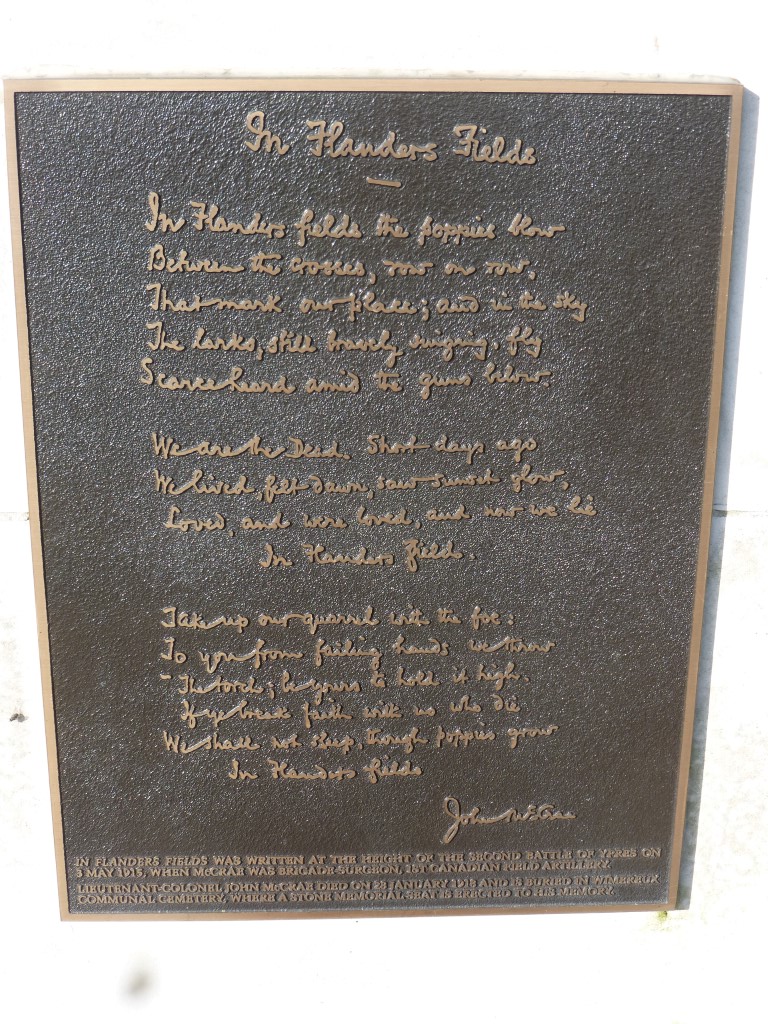 In Flanders Fields
—
In Flanders fields the poppies blow
Between the crosses, row on row,
That mark our place; and in the sky
The larks, still bravely singing, fly
Scarce heard amid the guns below.
We are the Dead. Short days ago
We lived, felt dawn, saw sunset glow,
Loved, and were loved, and now we lie
In Flanders fields.
Take up our quarrel with the foe:
To you from failing hands we throw
The torch; be yours to hold it high.
If ye break faith with us who die
We shall not sleep, though poppies grow
In Flanders fields
John McCrae
IN FLANDERS FIELDS WAS WRITTEN AT THE HEIGHT OF THE SECOND BATTLE OF YPRES ON
3 MAY 1915, WHEN McCRAE WAS BRIGADE-SURGEON, 1ST CANADIAN FIELD ARTILLERY.
LIEUTENANT-COLONEL JOHN McCRAE DIED ON 28 JANUARY 1918 AND IS BURIED IN WIMEREUX
COMMUNAL CEMETERY, WHERE A STONE MEMORIAL SEAT IS ERECTED TO HIS MEMORY.